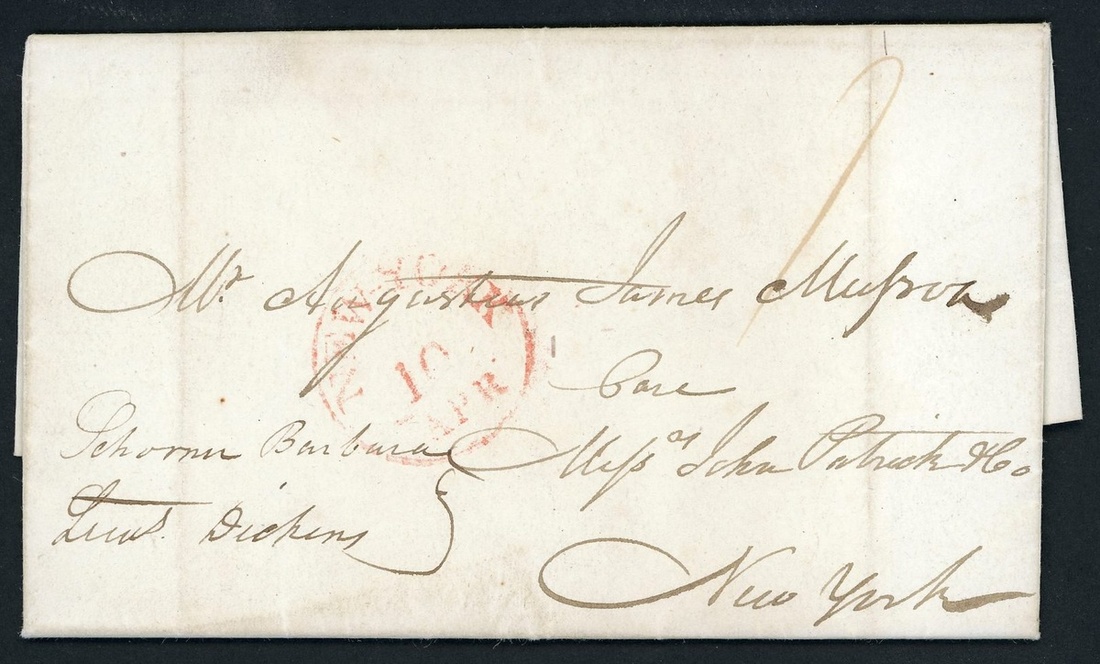 NEW-YORK
10
APR
Mr. Augustus James
Care
Messrs John Patrick & Co
Schooner Barbara
Dickens
New York